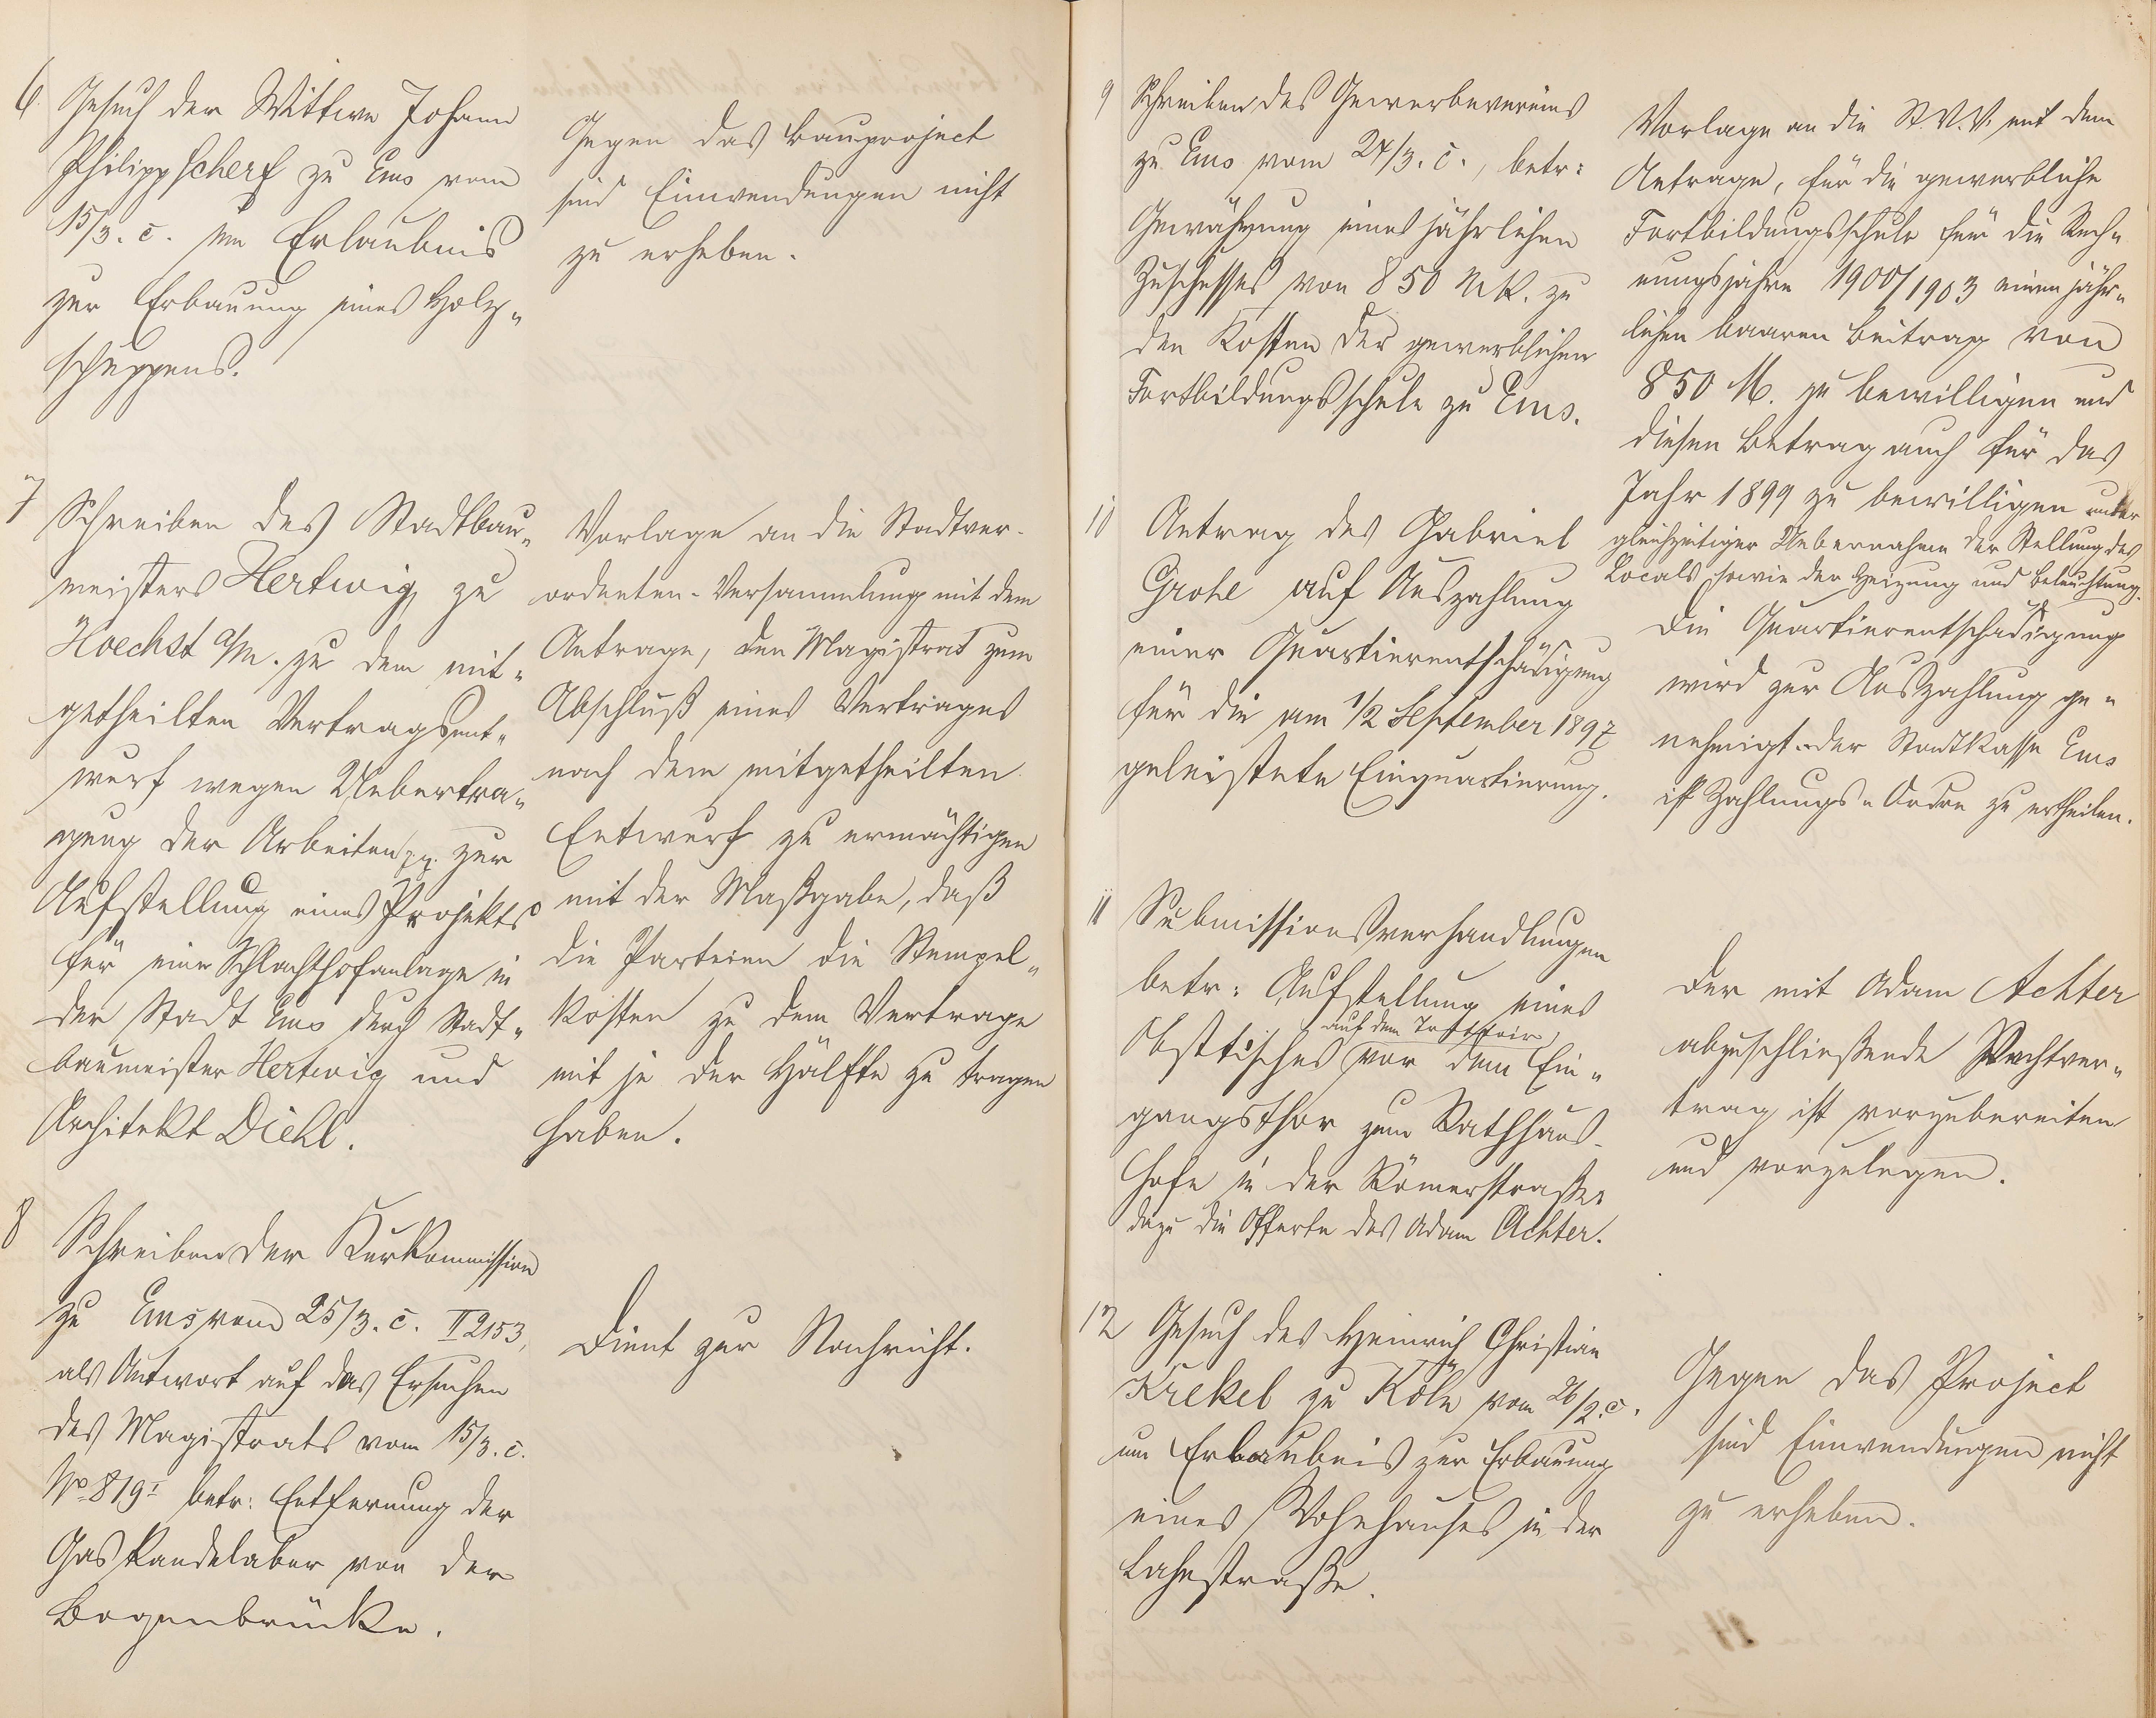 6 Gesuch der Wittwe Johann
Philipp Scherf zu Ems vom
15/3. c. um Erlaubnis
zur Erbauung eines Holz-
schuppens.
Gegen das Bauproject
sind Einwendungen nicht
zu erheben.
7 Schreiben des Stadtbau-
meisters Hertwig zu
Hoechst a/M. zu dem mit-
getheilten Vertragsent-
wurf wegen Uebertra-
gung der Arbeiten pp. zur
Aufstellung eines Projekts
für eine Schlachthofanlage in
der Stadt Ems durch Stadt-
baumeister Hertwig und
Architekt Diehl.
Vorlage an die Stadtver-
ordneten-Versammlung mit dem
Antrage, den Magistrat zum
Abschluß eines Vertrages
nach dem mitgetheilten
Entwurf zu ermächtigen
mit der Maßgabe, daß
die Parteien die Stempel-
kosten zu dem Vertrage
mit je der Hälfte zu tragen
haben.
8 Schreiben der Kurkommission
zu Ems vom 25/3. c. II 2153,
als Antwort auf das Ersuchen
des Magistrats vom 15/3. c.
No 819I betr: Entfernung der
Gaskandelaber von der
Bogenbrücke.
Dient zur Nachricht.
9 Schreiben des Gewerbevereins
zu Ems vom 24/3. c., betr:
Gewährung eines jährlichen
Zuschusses von 850 Mk. zu
den Kosten der gewerblichen
Fortbildungsschule zu Ems.
Vorlage an die St.V.V. mit dem
Antrage, für die gewerbliche
Fortbildungsschule für die Rech-
nungsjahre 1900/1903 einen jähr-
lichen baaren Beitrag von
850 M. zu bewilligen und
diesen Betrag auch für das
Jahr 1899 zu bewilligen unter
gleichzeitiger Uebernahme der Stellung des
Locals sowie der Heizung und Beleuchtung.
10 Antrag des Gabriel
Grohe auf Auszahlung
einer Quartierentschädigung
für die am 1/2 September 1897
geleistete Einquartierung.
Die Quartierentschädigung
wird zur Auszahlung ge-
nehmigt. der Stadtkasse Ems
ist Zahlungs-Ordre zu ertheilen.
11 Submissionsverhandlungen
betr: Aufstellung eines
auf dem Trottoir
Obsttisches vor dem Ein-
gangsthor zum Rathhaus-
hofe in der Römerstraße,
dazu die Offerte des Adam Achter.
Der mit Adam Achter
abzuschließende Pachtver-
trag ist vorzubereiten
und vorzulegen.
12 Gesuch des Heinrich Christian
Krekel zu Köln vom 26/2. c.
um Erlaubnis zur Erbauung
eines Wohnhauses in der
Lahnstraße.
Gegen das Project
sind Einwendungen nicht
zu erheben.